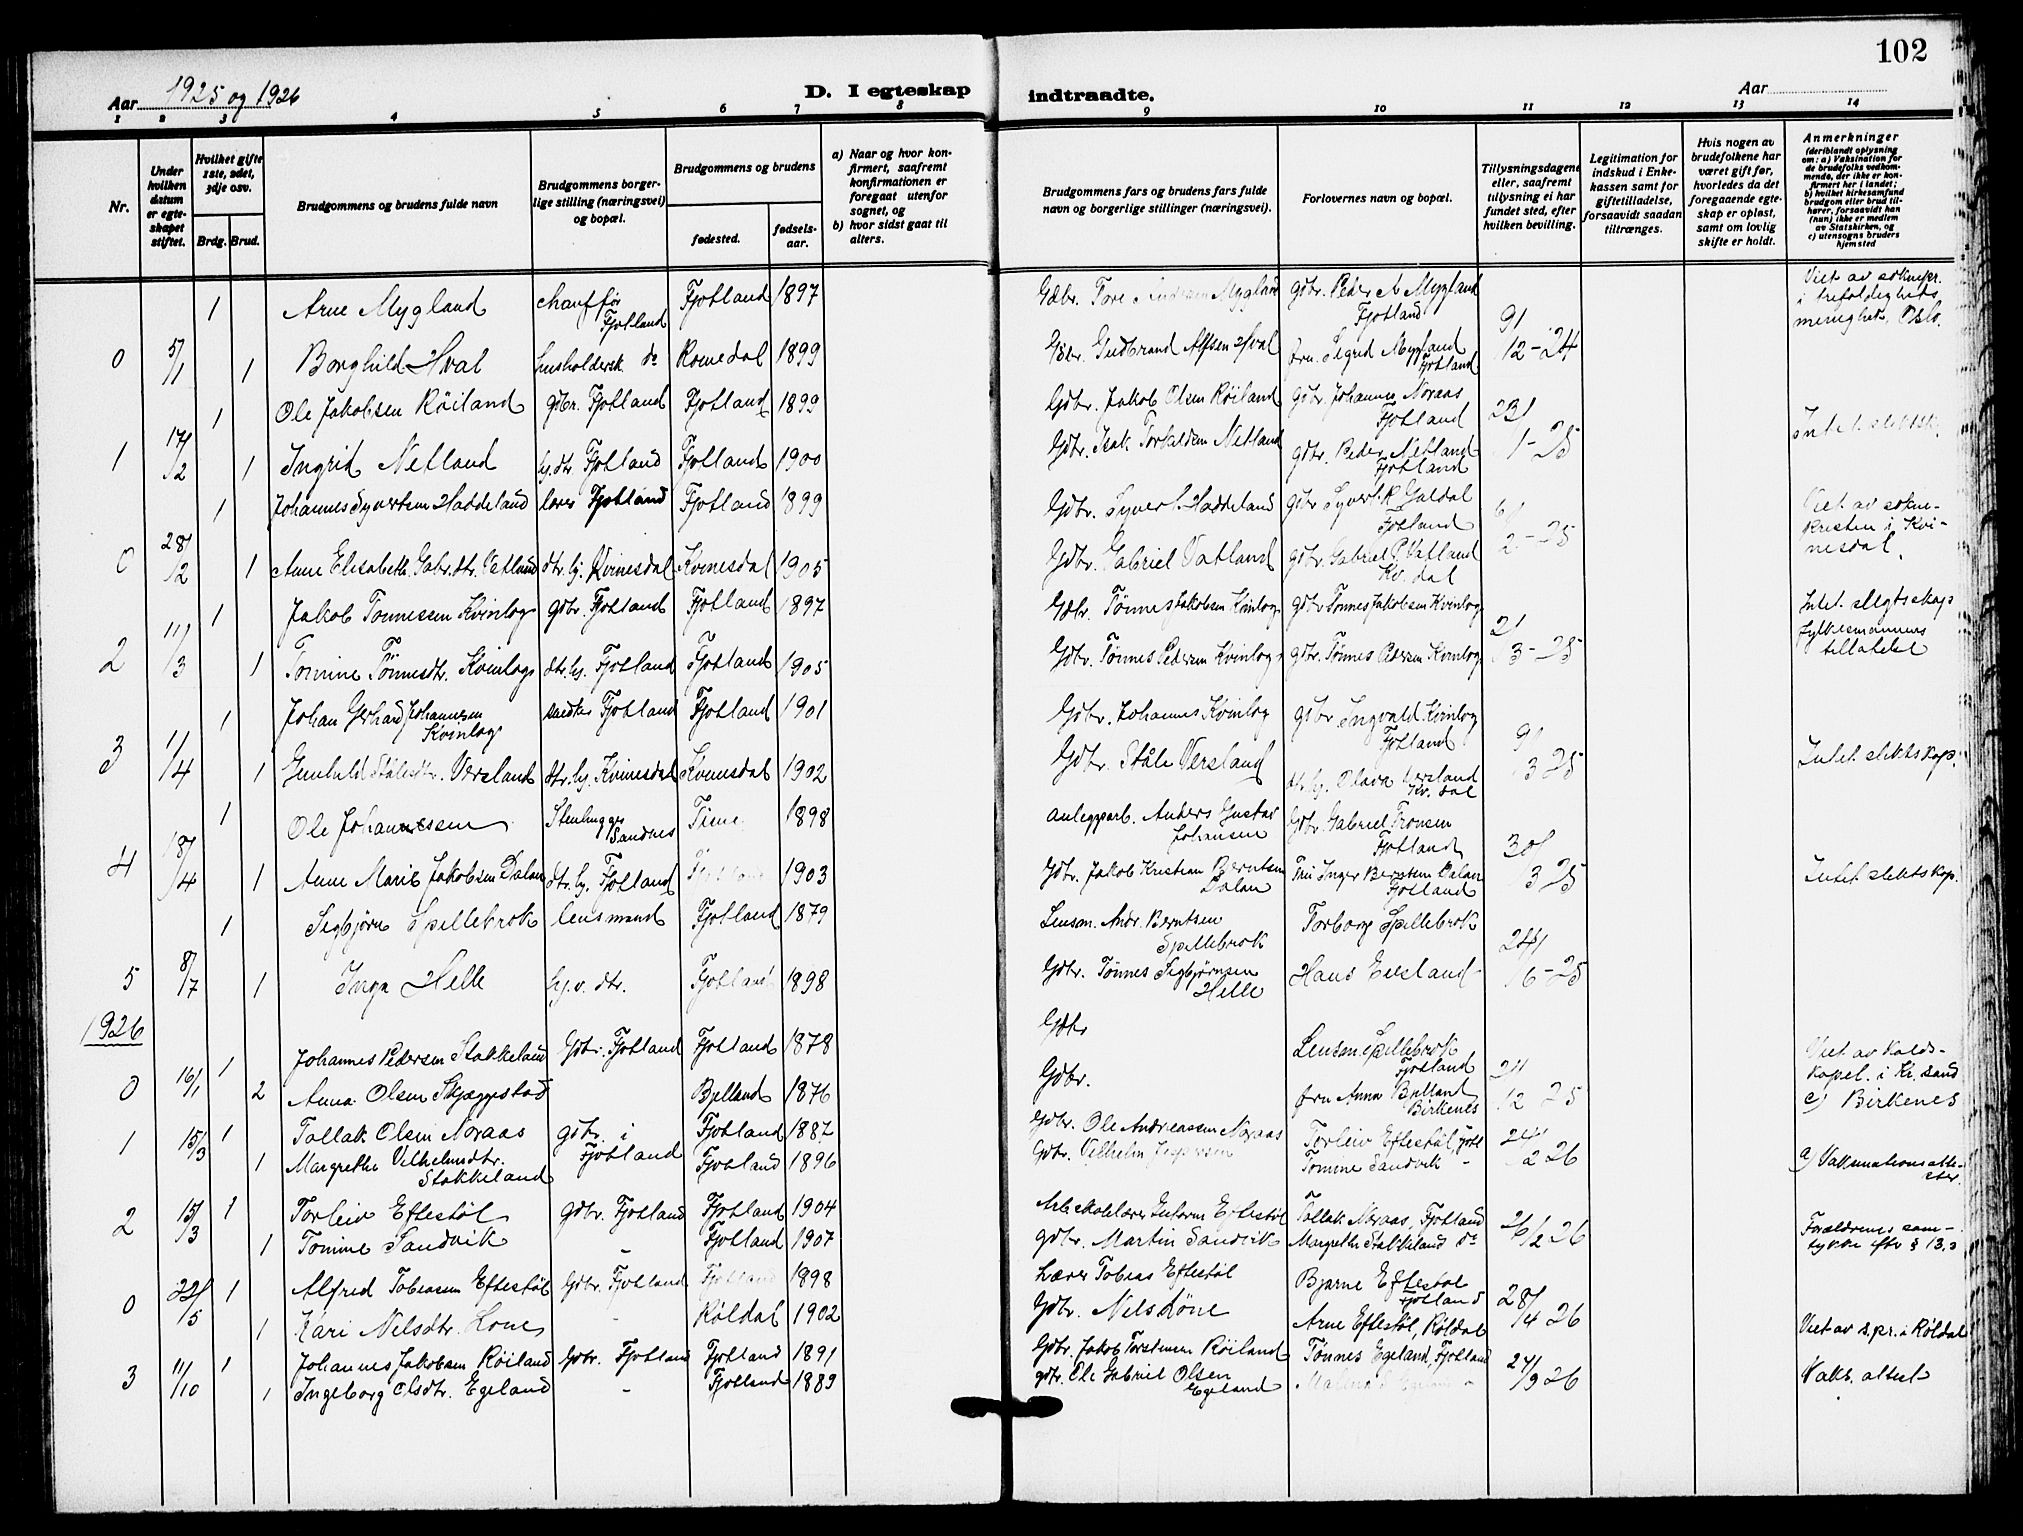 102
Aar 1925 og 1926
D. I egteskap
indtraadte.
Aar
1 2 3 4 5 6 7 8 9 10 11 12 13 14
Nr.
Under hvilken datum er egteskapet stiftet.
Hvilket gifte 1ste, 2det, 3dje osv.
Brdg. Brud.
Brudgommens og brudens fulde navn
Brudgommens borgerlige stilling (næringsvei) og bopæl.
Brudgommens og brudens
fødested.
fødselsaar.
a) Naar og hvor konfirmert, saafremt konfirmationen er foregaat utenfor sognet, og
b) hvor sidst gaat til alters.
Brudgommens fars og brudens fars fulde navn og borgerlige stillinger (næringsvei).
Forlovernes navn og bopæl.
Tillysningsdagene eller, saafremt tillysning ei har fundet sted, efter hvilken bevilling.
Legitimation for indskud i Enkekassen samt for giftetilladelse, forsaavidt saadan tiltrænges.
Hvis nogen av brudefolkene har været gift før, hvorledes da det foregaaende egteskap er opløst, samt om lovlig skifte er holdt.
Anmerkninger
(deriblandt oplysning om: a) Vaksination for de brudefolks vedkommende, der ikke er konfirmert her i landet;
b) hvilket kirkesamfund brudgom eller brud tilhører, forsaavidt han (hun) ikke er medlem av Statskirken, og
c) utensogns bruders hjemsted
1 Arne Mygland chauffør Fjotland Fjotland 1897 Gdbr. Tore Andersen Mygland gdbr. Peder A Mygland Fjotland
Viet av soknepr. i trefoldighets menighet, Oslo.
0 5/1 1 Borghild Hval husholdersk. do Romedal 1899 Gdbr. Gudbrand Alfsen Hval fru. Sigrid Mygland Fjotland 9/12-24
1 Ole Jakobsen Røiland gdbr. Fjotland Fjotland 1899 Gdbr. Jakob Olsen Røiland gdbr. Johannes Noraas Fjotland
1 17/2 1 Ingrid Netland hj.dtr. Fjotland Fjotland 1900 Gdbr. Isak Torkeldsen Netland gdbr. Peder Netland Fjotland 23/1-25 Intet slektsk.
1 Johannes Syvertsen Haddeland lærer Fjotland Fjotland 1899 Gdbr. Syvert Haddeland gdbr Syvert R Galdal Fjotland
0 28/2 1 Anne Elisabeth Gabr.dtr. Vatland dtr.hj. Kvinesdal Kvinesdal 1905 Gdbr. Gabriel Vatland gdbr. Gabriel P Vatland Kv.dal 6/2-25 Viet av soknepresten i Kvinesdal.
1 Jakob Tønnessen Kvinlog gdbr. Fjotland Fjotland 1897 Gdbr. Tønnes Jakobsen Kvinlog gdbr Tønnes Jakobsen Kvinlog
2 11/3 1 Tomine Tønnesdtr. Kvinlog dtr.hj. Fjotland Fjotland 1905 Gdbr. Tønnes Pedersen Kvinlog gdbr. Tønnes Pedersen Kvinlog 2/3-25 Intet slegtskap fylkesmannens tillatelse
1 Johan Gerhard Johannesen Kvinlog Fjotland Fjotland 1901 Gdbr. Johannes Kvinlog gdbr Ingvald Kvinlog Fjotland
3 1/4 1 Gunhild Ståledtr. Versland dtr.hj. Kvinesdal Kvinesdal 1902 Gdbr. Ståle Versland dtr.hj. Olava Versland Kv.dal 9/3 25 Intet slektskap.
1 Ole Johannessen Stenhugger Sandnes 1898 anleggarb. Anders Gustav Johansen Gdbr. Gabriel Tronsen Fjotland
4 18/4 1 Anne Marie Jakobsen Dalan dtr.hj. Fjotland Fjotland 1903 Gdbr. Jakob Kristian Berntsen Dalan Inger Berntsen Dalan Fjotland 30/3 25 Intet slektskap.
1 Sigbjørn Spillebrok lensmand Fjotland 1879 Lensm. Andr. Berntsen Spillebrok Torborg Spillebrok
5 8/7 1 Inga Helle hj.v. dtr. Fjotland 1898 Gdbr. Tønnes Sigbjørnsen Helle Hans Eersland 24/6-25
1926
1 Johannes Pedersen Stakkeland Gdbr. Fjotland Fjotland 1878 Gdbr Lensm. Spillebrok Fjotland
0 16/1 2 Anna Olsen Skjeggestad Bjelland 1876 Gdbr. fru Anna Bjelland Birkenes 2/12 25 Viet av kalds-kapel. i Kr.sand c) Birkenes
1 15/3 1 Tollak Olsen Noraas gdbr. i Fjotland Fjotland 1887 Gdbr. Ole Andreassen Noraas Torleiv Eftestøl, Fjotl
1 Margrethe Vilhelmsdtr. Stakkeland Fjotland 1896 Gdbr. Vilhelm Jespersen Tomine Sandvik - 24/2 26 a) Vaksinationsattester.
2 15/3 1 Torleiv Eftestøl gdbr. Fjotland Fjotland 1904 skolelærer Eftestøl Tollak Noraas, Fjotland
1 Tomine Sandvik - Fjotland 1907 gdbr. Martin Sandvik Margrethe Stakkeland do 26/2 26 Forældrenes samtykke efter § 13.2
0 22/5 1 Alfred Tobiassen Eftestøl Gdbr. Fjotland Fjotland 1898 Lærer Tobias Eftestøl Bjarne Eftestøl Fjotland
1 Kari Nelsdtr. Lone - Røldal 1902 Gdbr. Nels Lone Arne Eftestøl, Røldal 28/4 26 Viet av s.pr. i Røldal
3 11/10 1 Johannes Jakobsen Røiland Gdbr. Fjotland Fjotland 1891 Gdbr. Jakob Torstensen Røiland Tønnes Egeland, Fjotland
1 Ingeborg Elisdtr. Egeland - Fjotland 1889 gdbr. Eli Gabriel Olsen Egeland 24/9 26 Vaks. attest